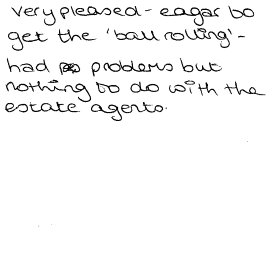 very pleased - eagar to
get the 'ball rolling' -
had problems but
nothing to do with the
estate agents.